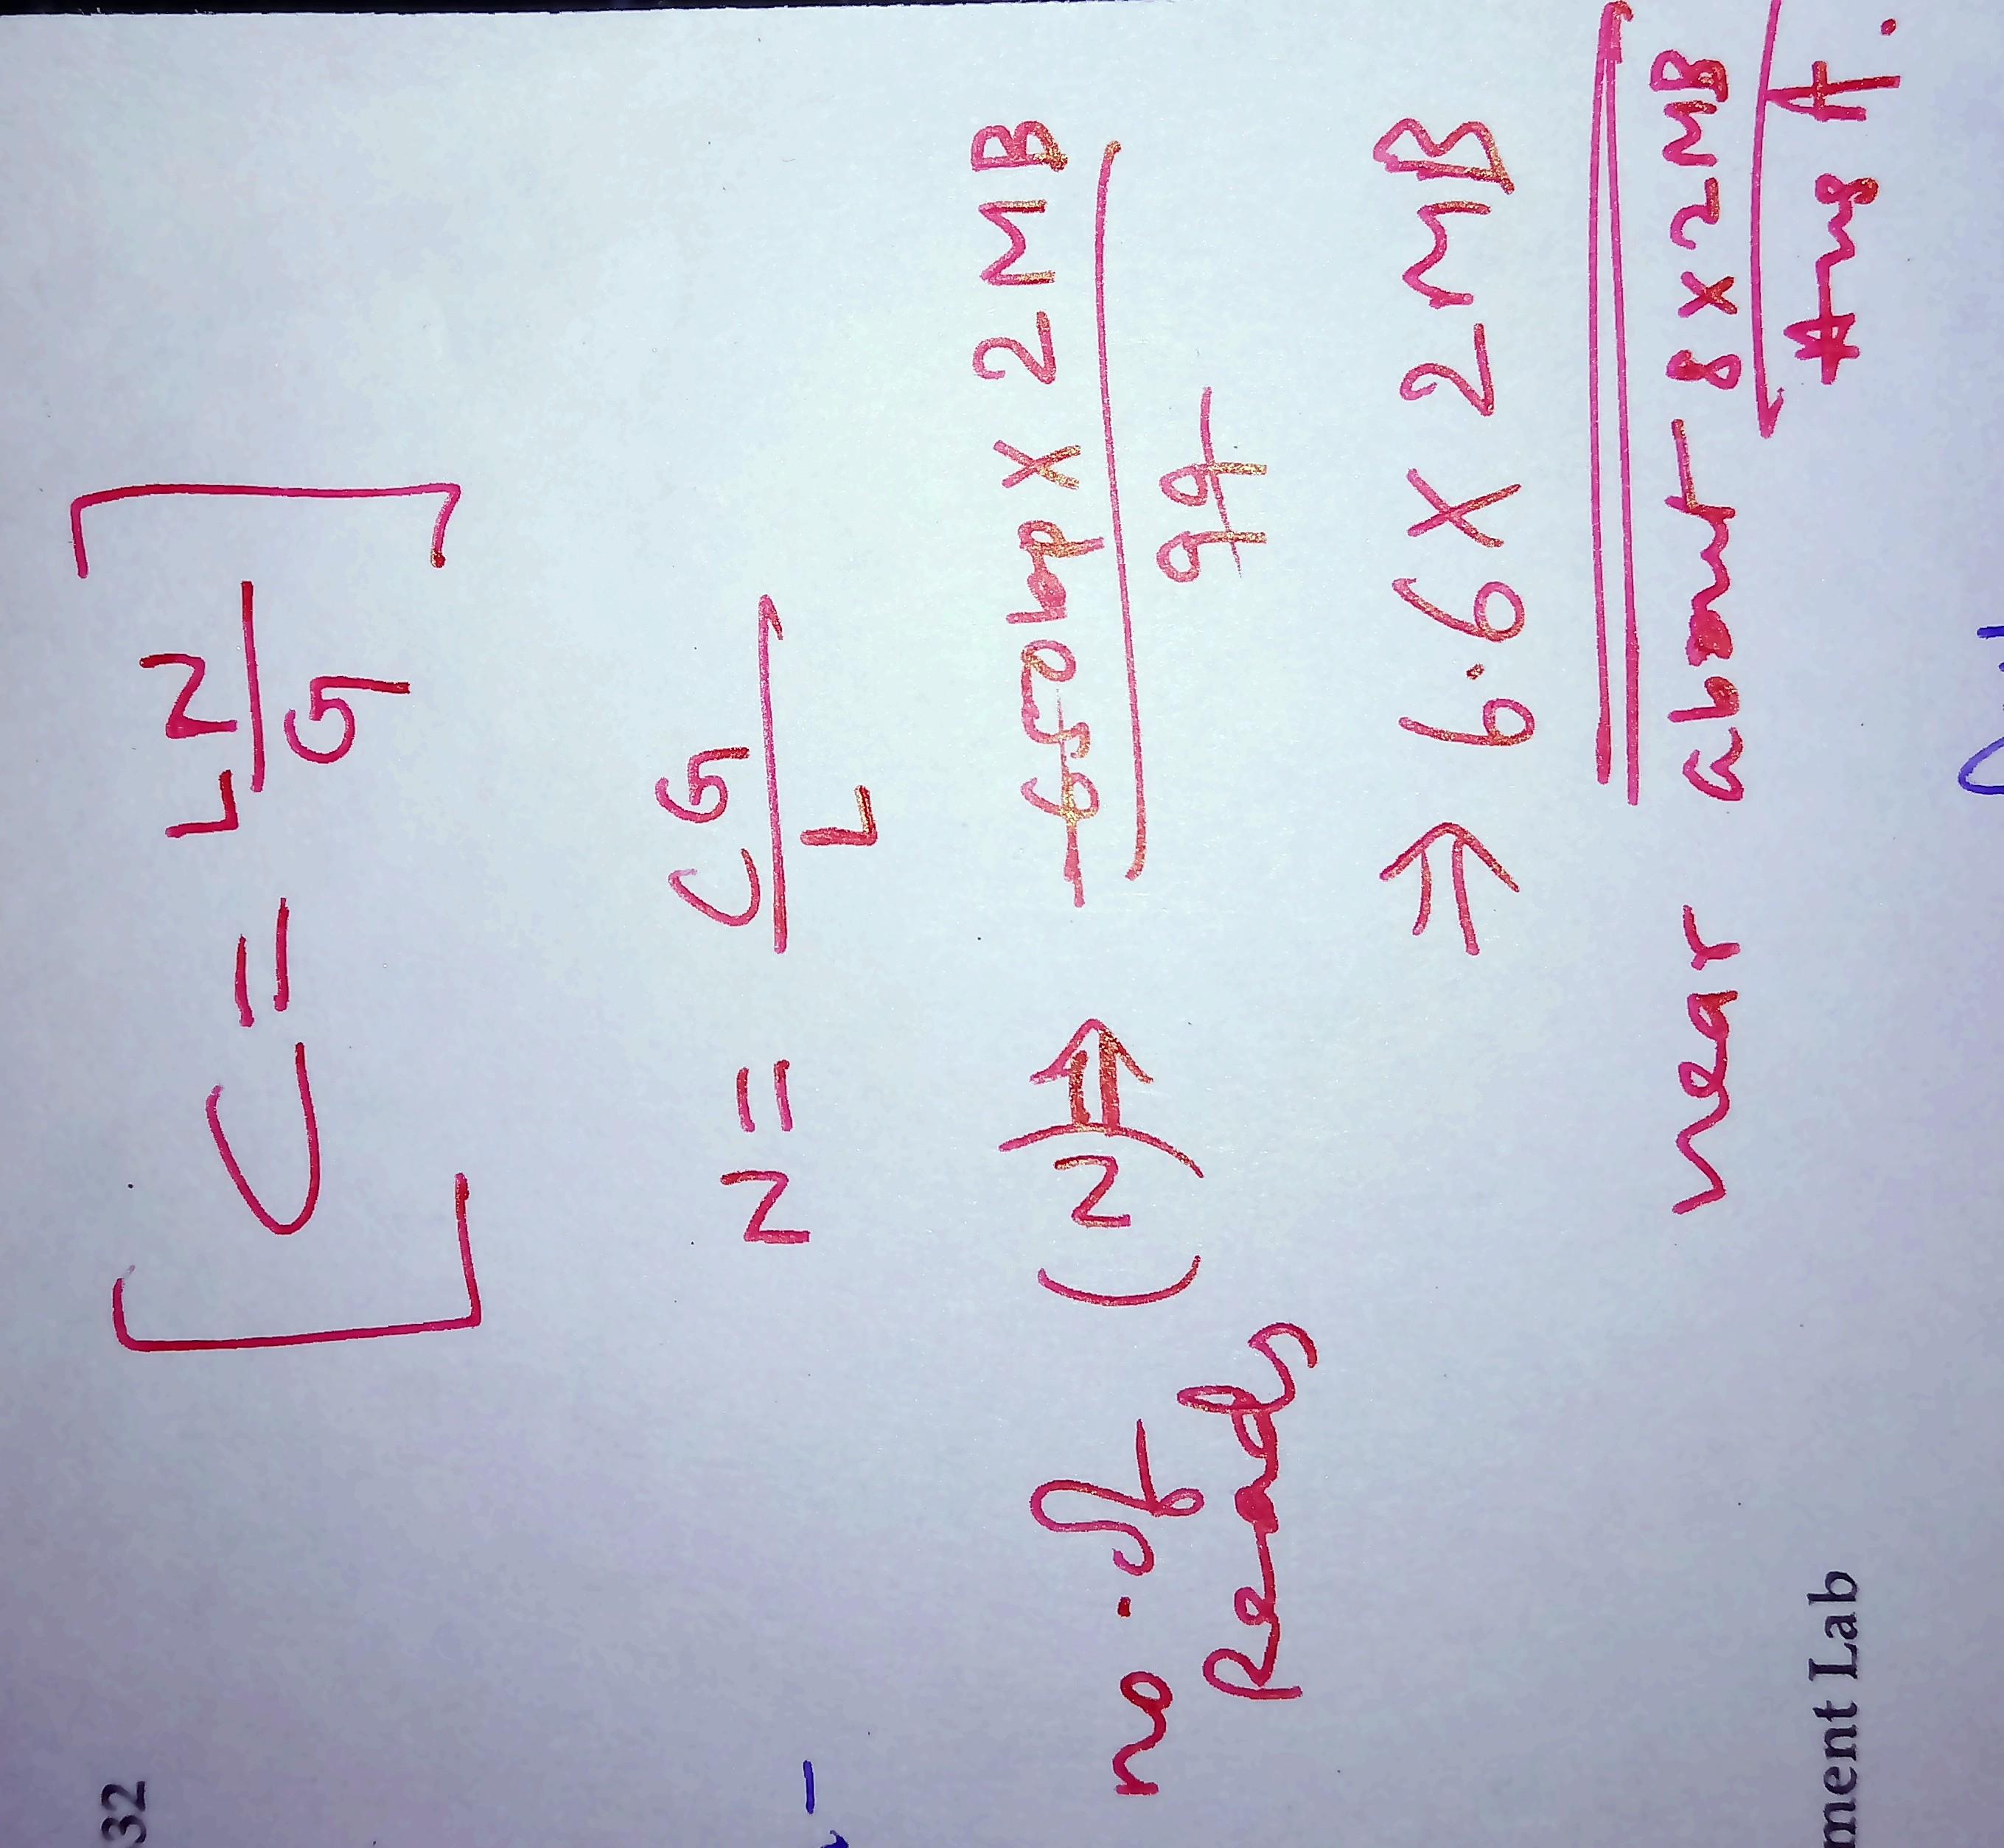 32
[ C = L N / G ]
N = C G / L
no. of Reads (N) ⇒ 650bp × 2MB / 99
⇒ 6.6 × 2MB
near about 8 × 2MB
ment Lab